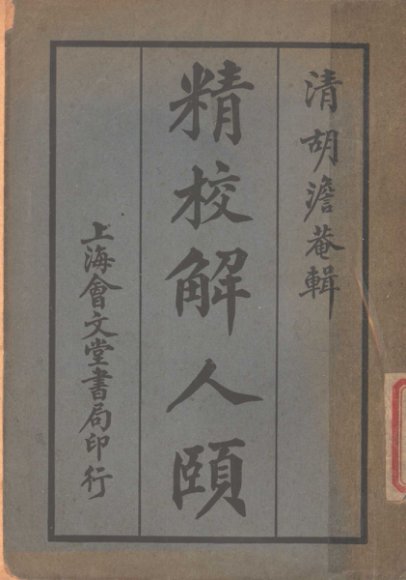 清胡澹菴輯
精校解人頤
上海會文堂書局印行